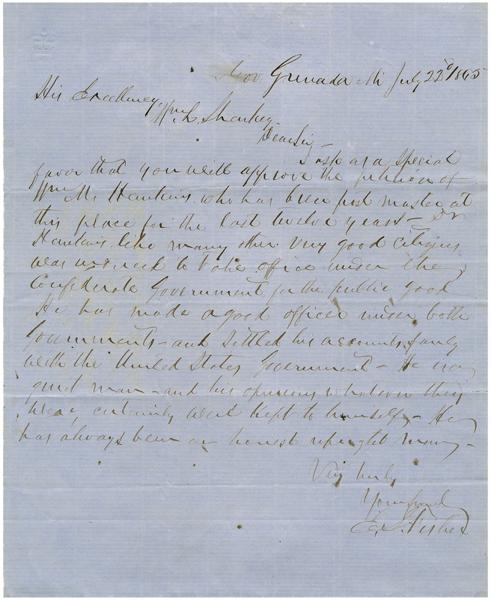 Near Grenada Mi July 22d 1865
His Excellency
Wm L. Sharkey
Dear Sir—
I ask as a special
favor that you will approve the petition of
Wm M. Hankins who has been post master at
this place for the last twelve years— Dr
Hankins like many other very good citizens
was induced to take office under the
Confederate Government for the public good
He has made a good officer under both
Governments— and settled his accounts fairly
with the United States Government— He is a
quiet man— and his opinions whatever they
were, certainly were kept to himself— He
has always been an honest upright man—
Very truly
Your friend
E. S. Fisher